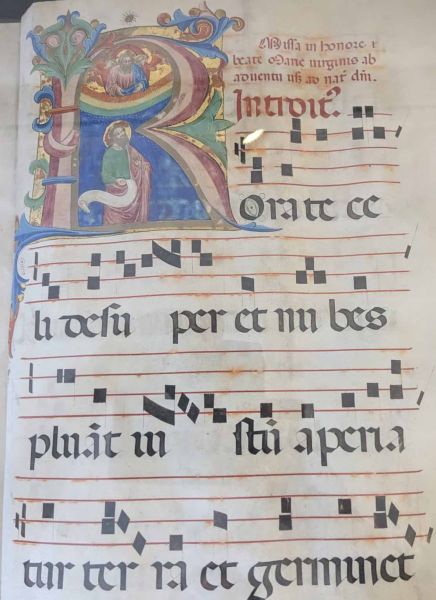 Missa in honore
beate Marie virginis ab
adventu usq; ad nat' dni.
Introit'.
Rorate ce
li desu per et nu bes
pluāt iu stū aperia
tur ter ra et germinet